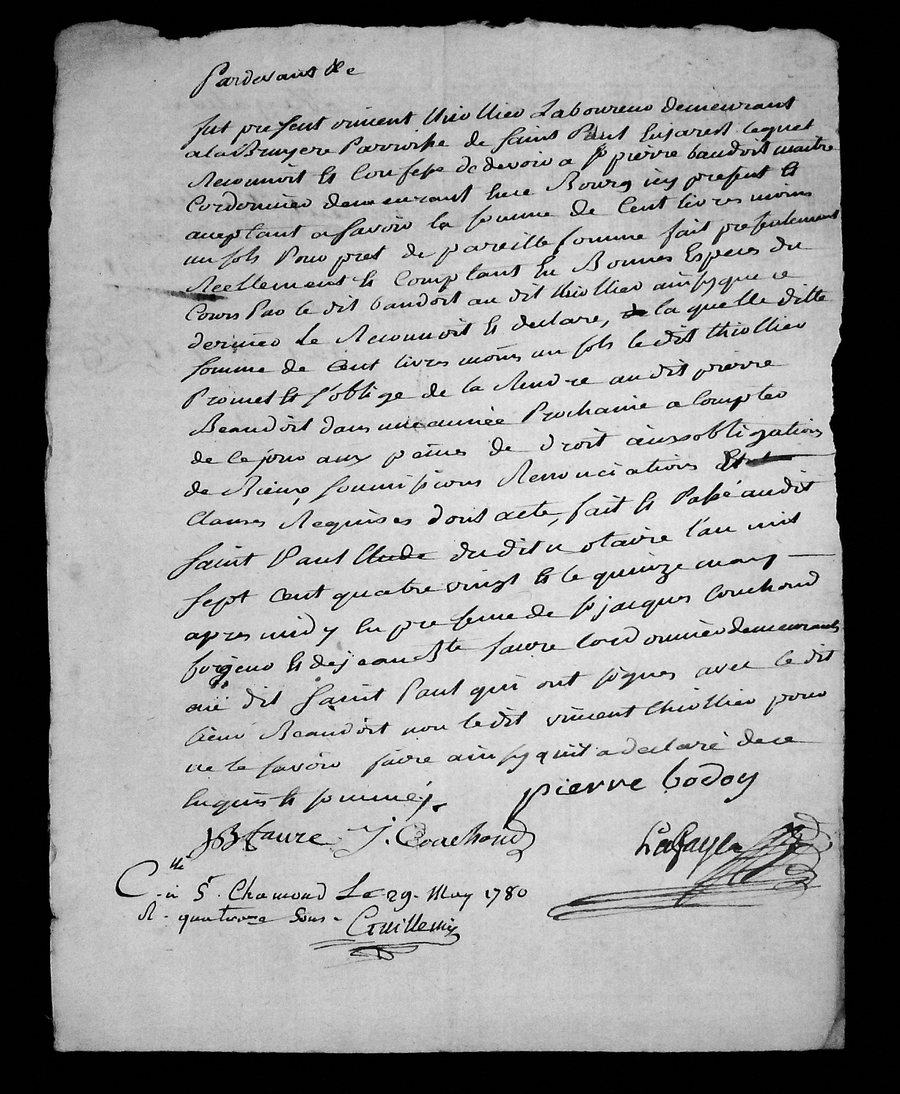 Pardevant &c
fut present vincent thiollier Laboureur demeurant
a la Bruyere Parroisse de Saint Paul En jarest lequel
Reconnoit Et Confesse de devoir a Sr pierre baudoit maitre
Cordonnier demeurant au Bourg icy present Et
aceptant a savoir la somme de Cent livres moins
un sols Pour pret de pareille somme fait presentement
Reellement Et Comptant En Bonnes Especes du
Cours Par le dit baudoit au dit thiollier ainsy que ce
dernier Le Reconnoit Et declare, la quelle ditte
somme de Cent livres moins un sols le dit thiollier
Promet Et s'oblige de la Rendre audit pierre
Beaudoit dans une année Prochaine a Compter
de ce jour aux peines de droit aux obligations
de Biens, soumissions Renonciations Et
Clauses Requises dont acte, fait Et Passé audit
Saint Paul Etude dudit notaire l'an mil
sept Cent quatre vingt Et le quinze may
apres midy En presence de Sr jacques Couchoud
forgeur Et de jean Bte faure Cordonnier demeurants
au dit Saint Paul qui ont signes avec le dit
sieur Beaudoit non le dit vincent thiollier pour
ne le savoir faire ainsy quil a declaré de ce
Enquis Et sommé.
pierre bodoy
JB faure J. Couchoud
Lafaye
C.lle à St. Chamond Le 29. May 1780
R. quatorze Sous.
Guillemin